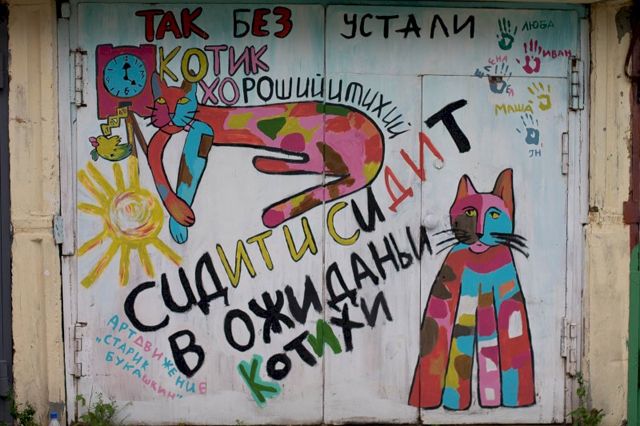 ТАК БЕЗ УСТАЛИ
КОТИК
ХОРОШИЙ И ТИХИЙ
СИДИТ И СИДИТ
СИДИТ
В ОЖИДАНЬИ
КОТИХИ
АРТДВИЖЕНИЕ
"СТАРИК
БУКАШКИН"
ЛЮБА
ИВАН
МАША